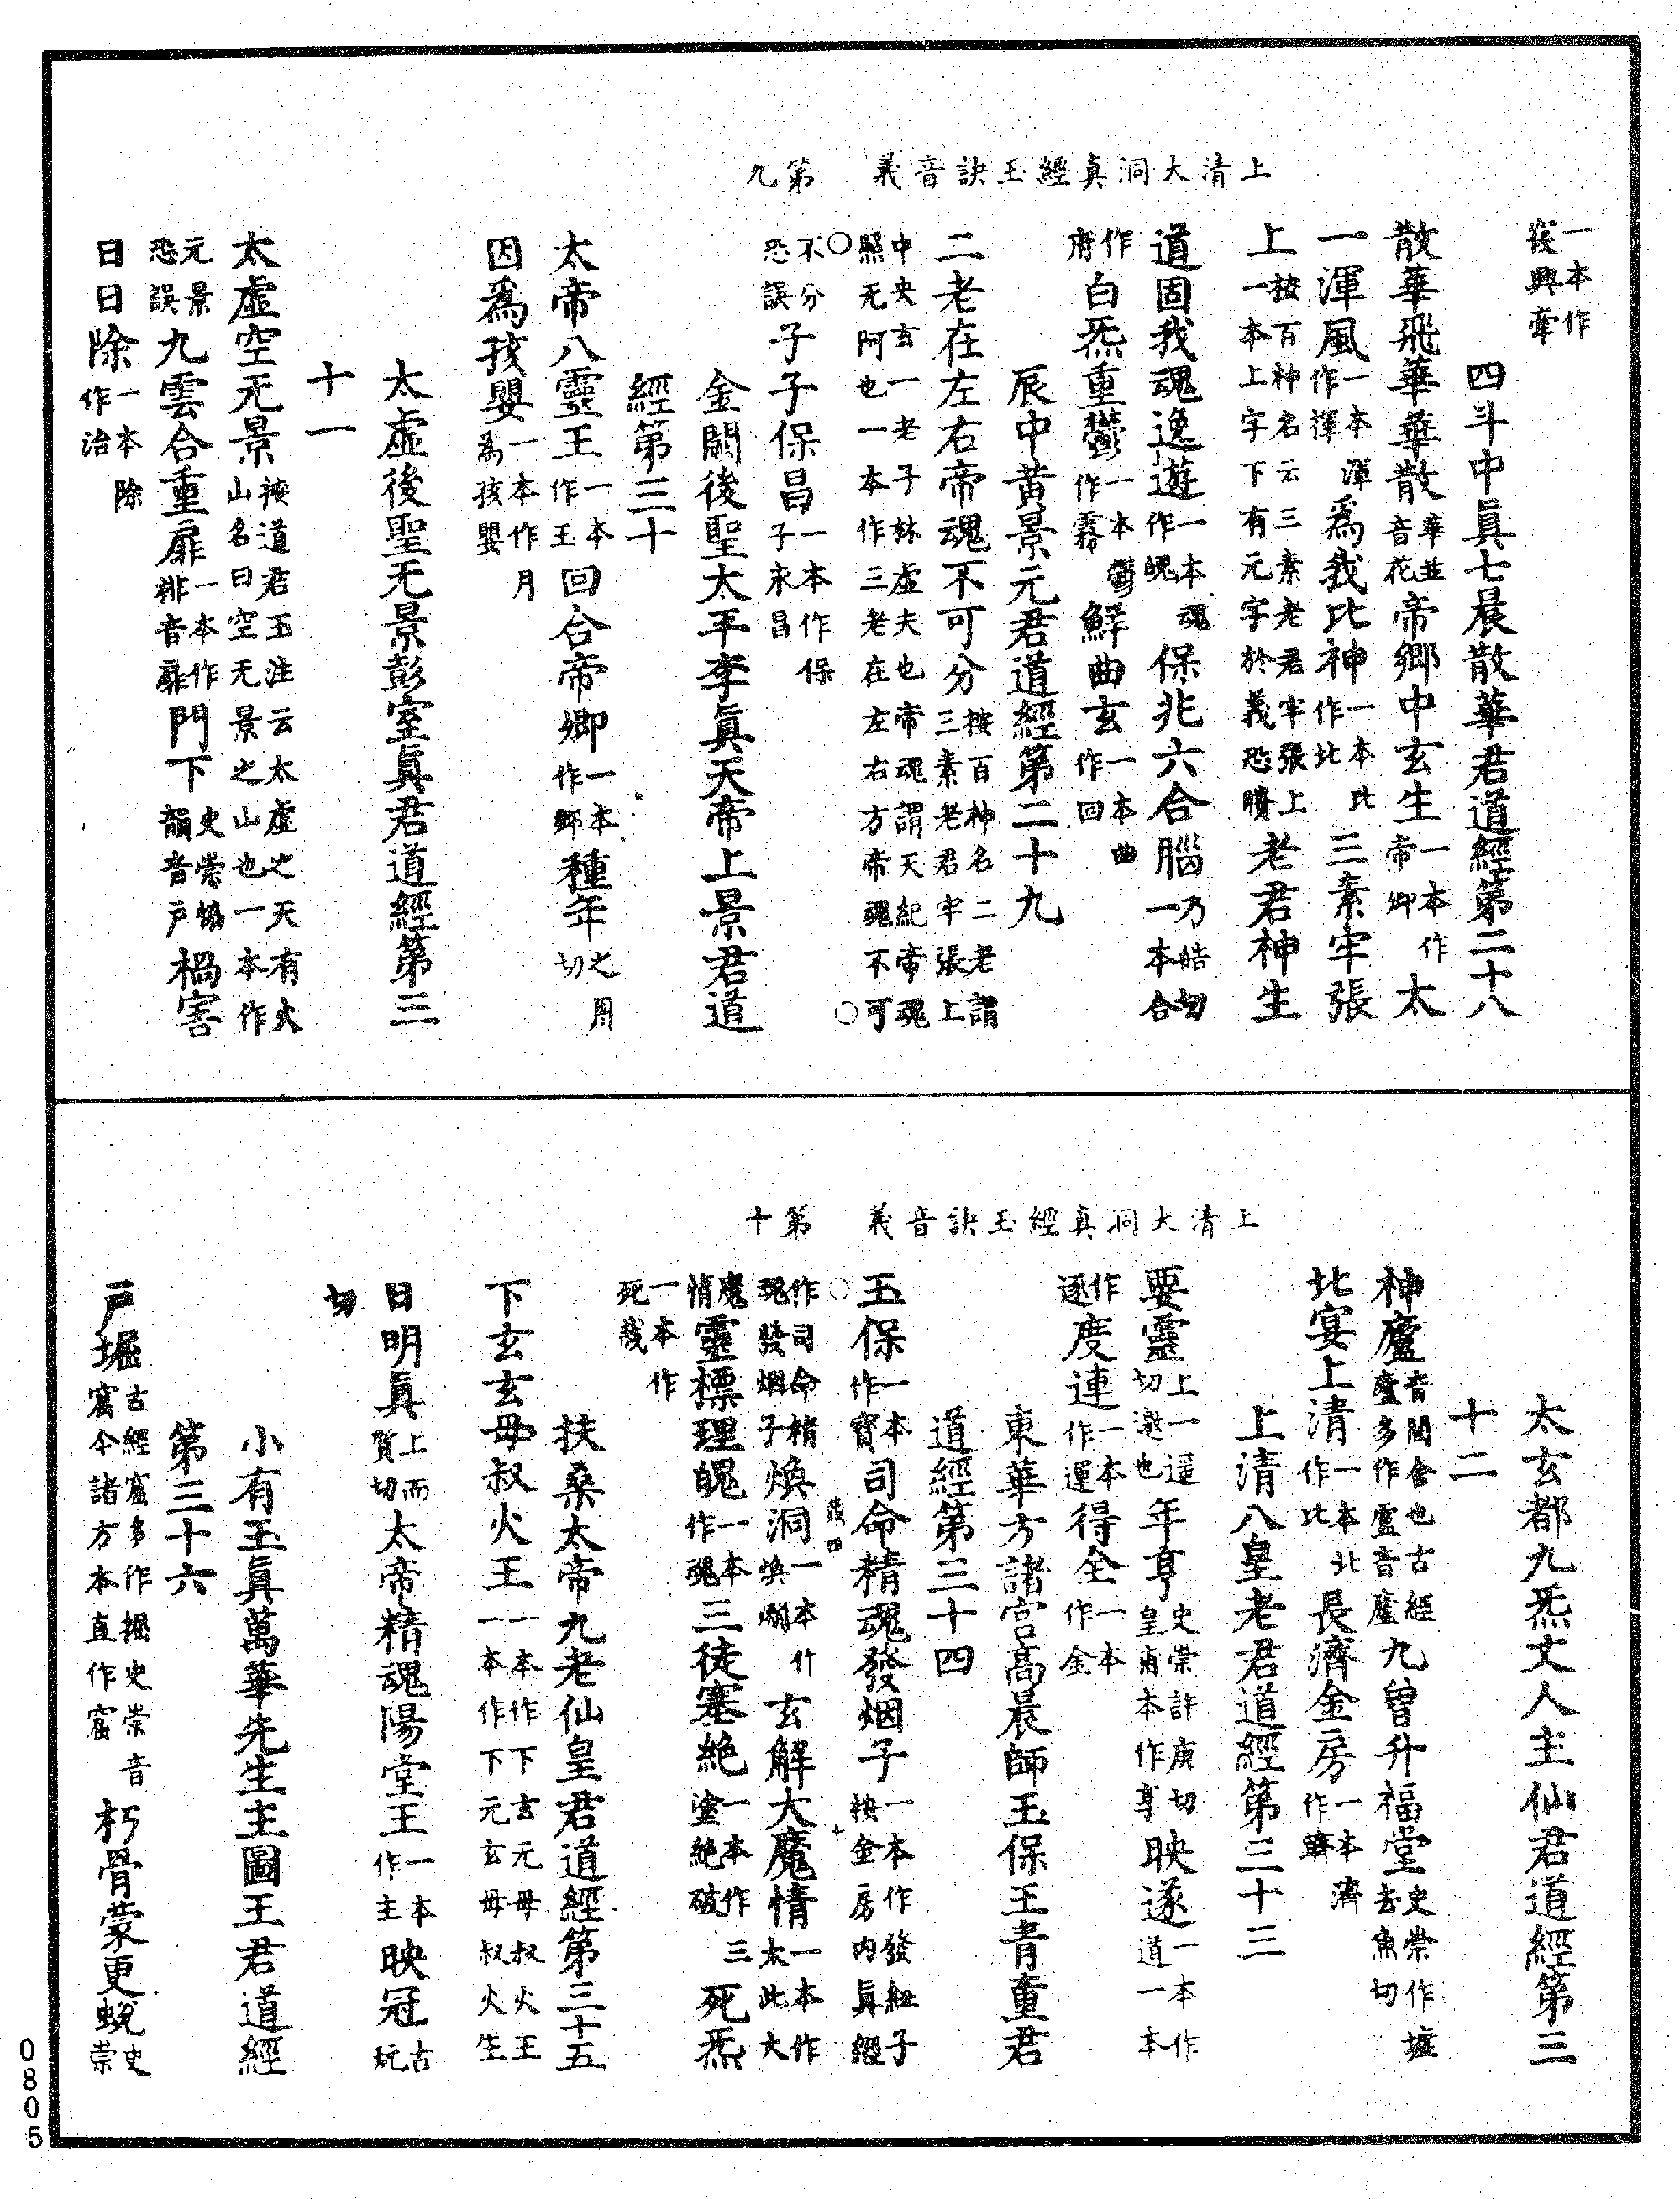 上清大洞真經玉訣音義　第九
一本作
筴興牽
四斗中真七晨散華君道經第二十八
散華飛華華散華並音花帝鄉中玄生一本作帝卿太
一渾風一本渾作揮為我比神一本比作此三素牢張
上按百神名云三素老君牢張上一本上字下有元字於義恐賸老君神生
道固我魂逸遊一本魂作魄保兆六合腦乃皓切一本合
作府白炁重鬱一本鬱作霧鮮曲玄一本曲作回
辰中黃景元君道經第二十九
二老在左右帝魂不可分按百神名二老謂三素老君牢張上
中央玄一老子林虛夫也帝魂謂天紀帝魂照无阿也一本作三老在左右方帝魂不可
不分恐誤子子保昌一本作保子子來昌
金闕後聖太平李真天帝上景君道
經第三十
太帝八靈王一本作玉回合帝卿一本作鄉種年之用切
因為孩嬰一本作月為孩嬰
太虛後聖无景彭室真君道經第三
十一
太虛空无景按道君玉注云太虛之天有火山名曰空无景之山也一本作
元景恐誤九雲合重扉一本作棑音扉門下史崇協韻音戶禍害
日日除一本除作治
上清大洞真經玉訣音義　第十
太玄都九炁丈人主仙君道經第三
十二
神廬音閭舍也古經廬多作盧音廬九曾升福堂史崇作墟去魚切
北宴上清一本北作比長濟金房一本濟作躋
上清八皇老君道經第三十三
要靈上一遥切邀也年亨史崇許庚切皇甫本作享映遂一本作道一本
作逐度連一本作運得全一本作金
東華方諸宮高晨師玉保王青童君
道經第三十四
五保一本作寶司命精魂發烟子一本作發紐子按金房內真經
作司命精魂發烟子煥洞一本作煥爛玄解大魔情一本作太此大
魔情靈標理魄一本作魂三徒塞絕一本作三塗絕破死炁
一本作死哉
扶桑太帝九老仙皇君道經第三十五
下玄玄母叔火王一本作下玄元母叔火王一本作下元玄母叔火生
日明真上而質切太帝精魂陽堂王一本作主映冠古玩
切
小有玉真萬華先生主圖王君道經
第三十六
戶堀古經窟多作掘史崇音窟今諸方本直作窟朽骨蒙更蛻史崇
0805